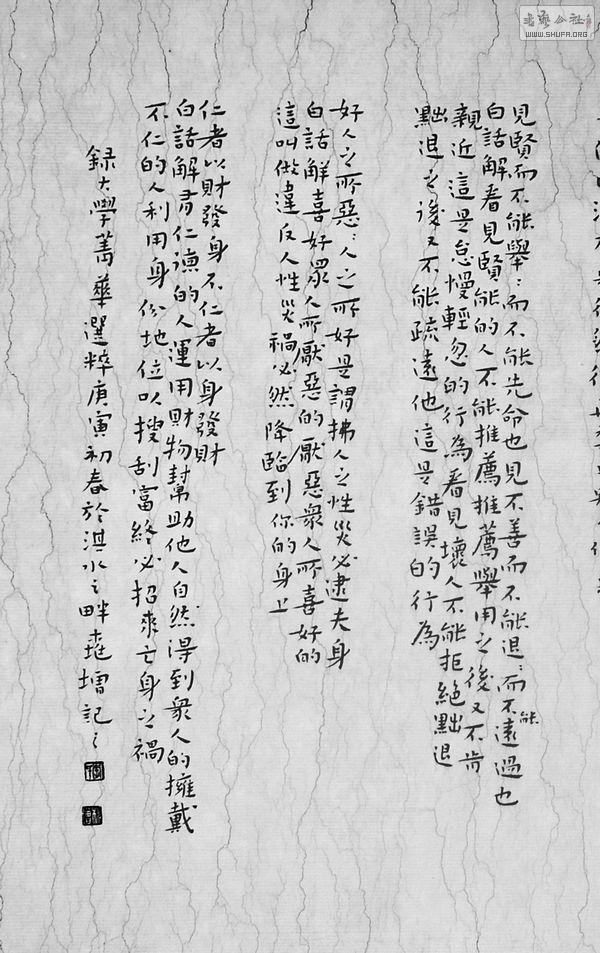 書藝公社
WWW.SHUFA.ORG
見賢而不能舉〻而不能先命也見不善而不能退〻而不能遠過也
白話解看見賢能的人不能推薦推薦舉用之後又不肯
親近這是怠慢輕忽的行為看見壞人不能拒絕黜退
黜退之後又不能疏遠他這是錯誤的行為
好人之所惡〻人之所好是謂拂人之性災必逮夫身
白話解喜好眾人所厭惡的厭惡眾人所喜好的
這叫做違反人性災禍必然降臨到你的身上
仁者以財發身不仁者以身發財
白話解有仁德的人運用財物幫助他人自然得到眾人的擁戴
不仁的人利用身份地位以搜刮富終必招來亡身之禍
錄大學菁華選粹庚寅初春於淇水之畔堯增記之